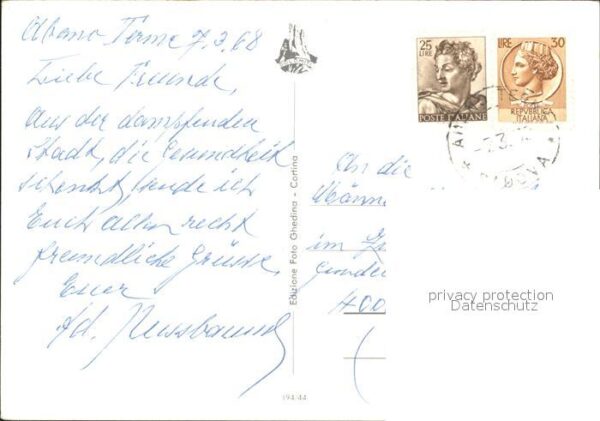 Abano Terme 7.3.68
Liebe Freunde,
Aus der dampfenden
Stadt, die Gesundheit
schenkt, sende ich
Euch allen recht
freundliche Grüsse,
Euer
Ad. Nussbaumer
Edizione Foto Ghedina - Cortina
194/44
25
LIRE
POSTE ITALIANE
LIRE 30
REPVBBLICA
ITALIANA
An die
im
400
privacy protection
Datenschutz